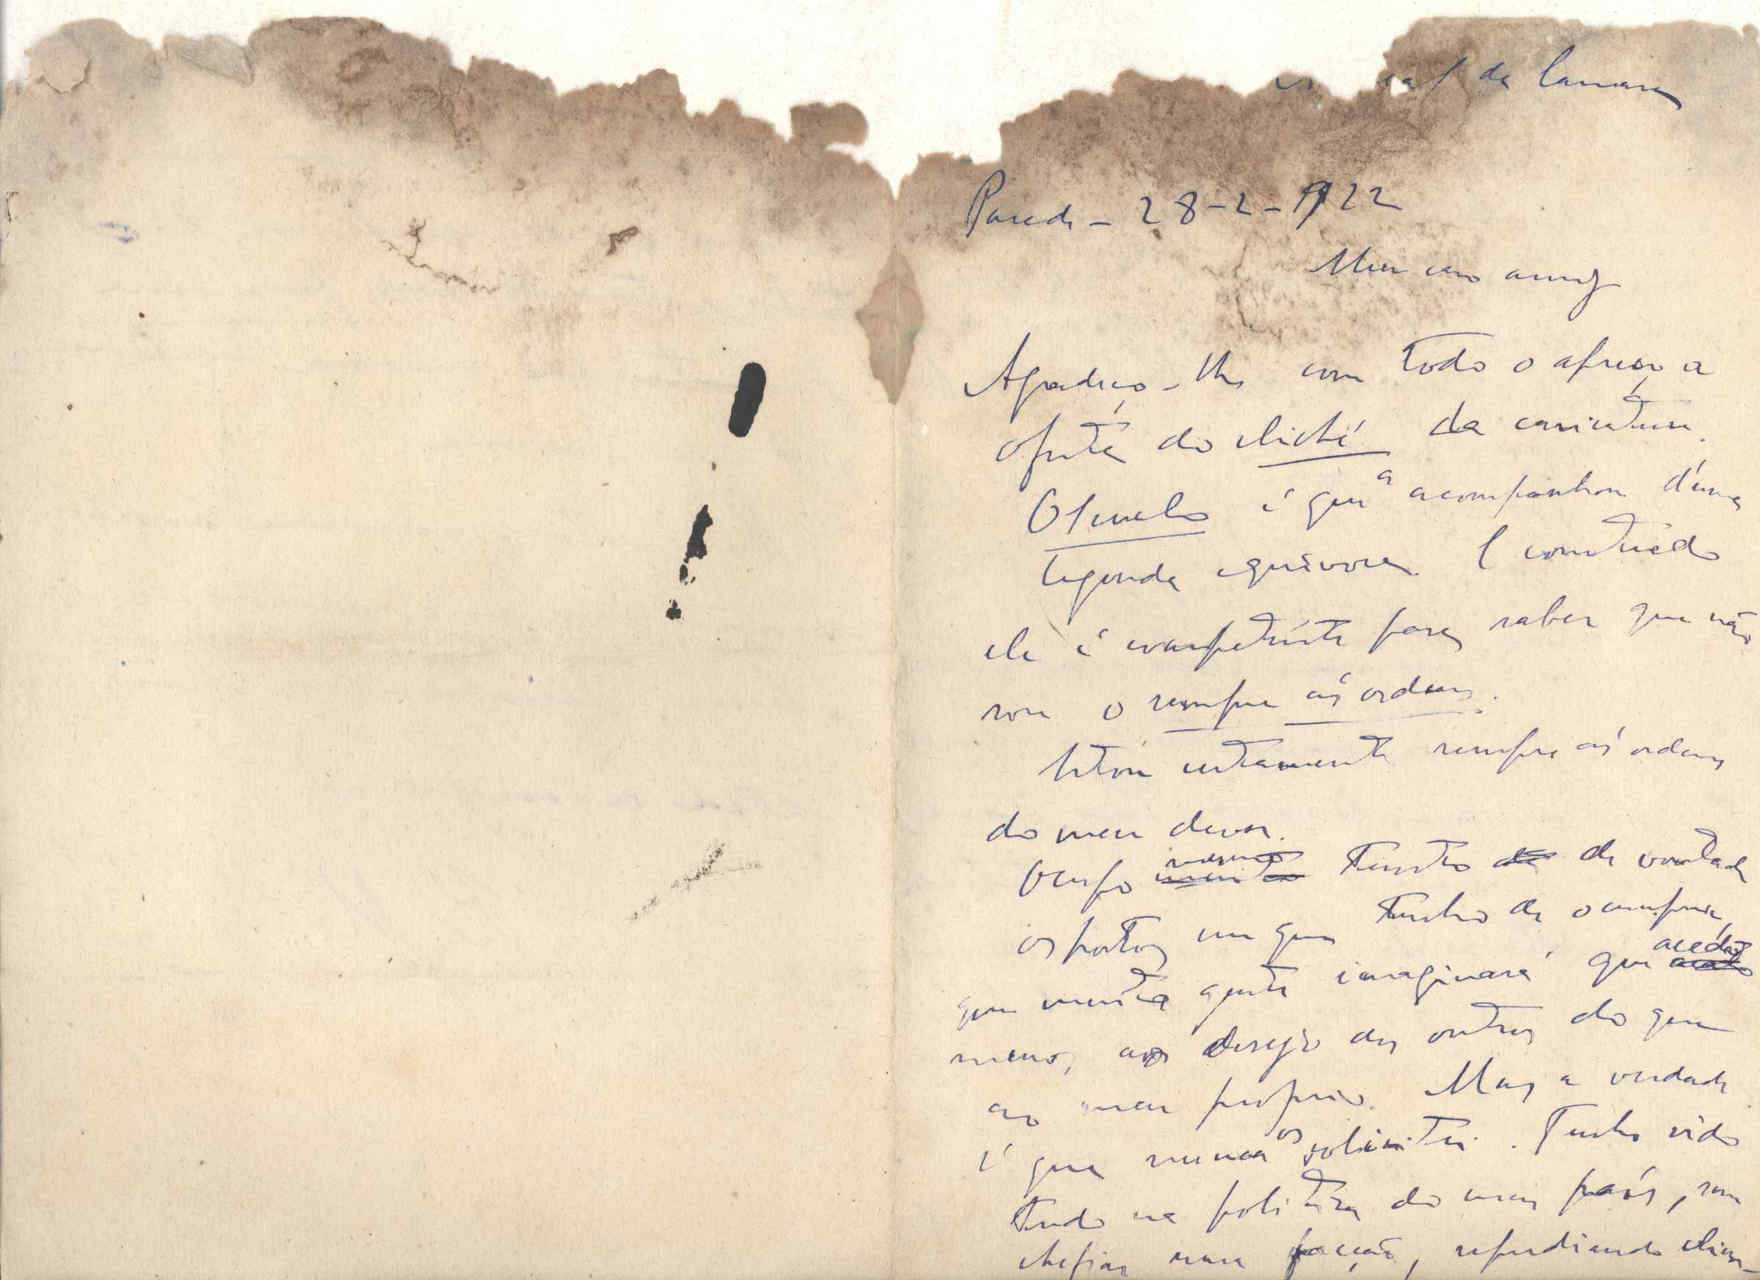 da Camara
Parede - 28-2-1922
Meu caro amigo
Agradeço-lhe com todo o apreço a
oferta do cliché da caricatura.
O Seculo é que a acompanhou d'uma
legenda equivoca. E contudo
ele é competente para saber que não
sou o sempre ás ordens.
Estou certamente sempre ás ordens
do meu dever.
Ocupo tanto de de vontade
os postos em que tenho de o cumprir,
que muita gente imaginará que acedo
menos, ao desejo dos outros do que
ao meu proprio. Mas a verdade
é que nunca os solicitei. Tenho sido
tudo na politica do meu país, sem
chefiar uma facção, repudiando clien-